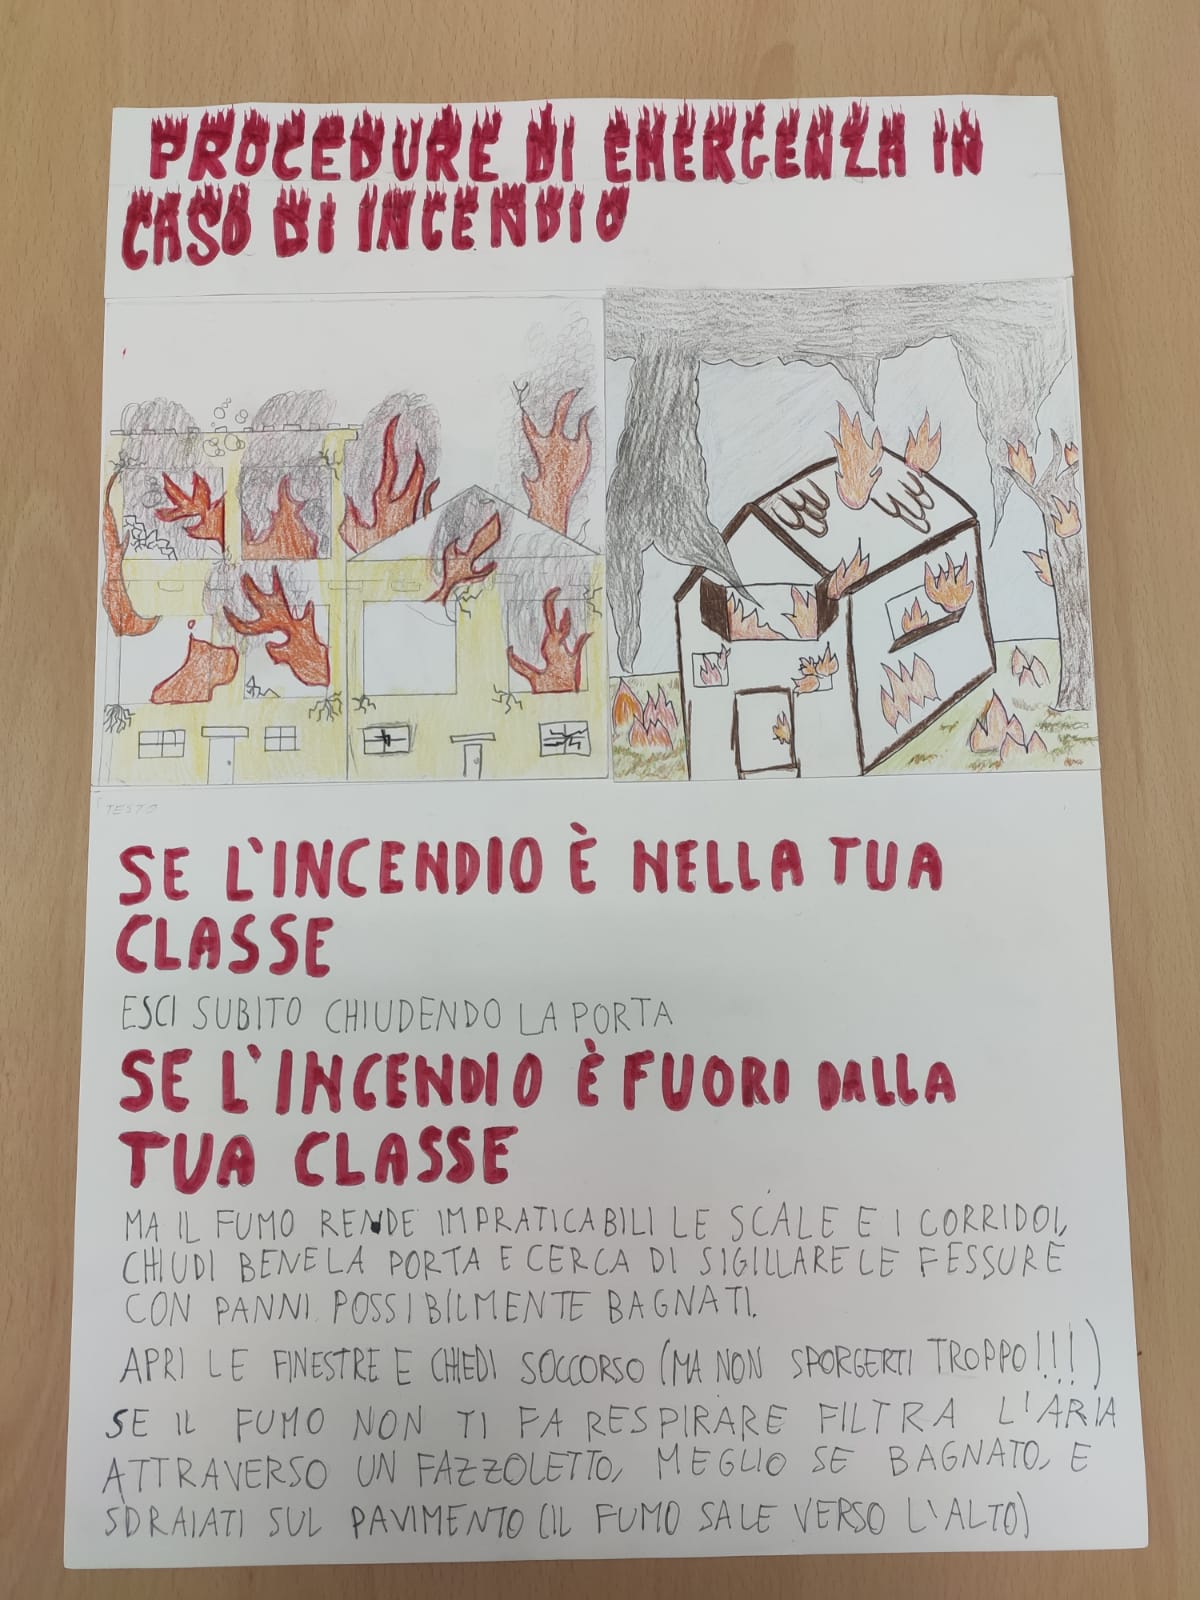 PROCEDURE DI EMERGENZA IN
CASO DI INCENDIO
TESTO
SE L'INCENDIO È NELLA TUA
CLASSE
ESCI SUBITO CHIUDENDO LA PORTA
SE L'INCENDIO È FUORI DALLA
TUA CLASSE
MA IL FUMO RENDE IMPRATICABILI LE SCALE E I CORRIDOI,
CHIUDI BENE LA PORTA E CERCA DI SIGILLARE LE FESSURE
CON PANNI POSSIBILMENTE BAGNATI.
APRI LE FINESTRE E CHIEDI SOCCORSO (MA NON SPORGERTI TROPPO!!!)
SE IL FUMO NON TI FA RESPIRARE FILTRA L'ARIA
ATTRAVERSO UN FAZZOLETTO, MEGLIO SE BAGNATO, E
SDRAIATI SUL PAVIMENTO (IL FUMO SALE VERSO L'ALTO)